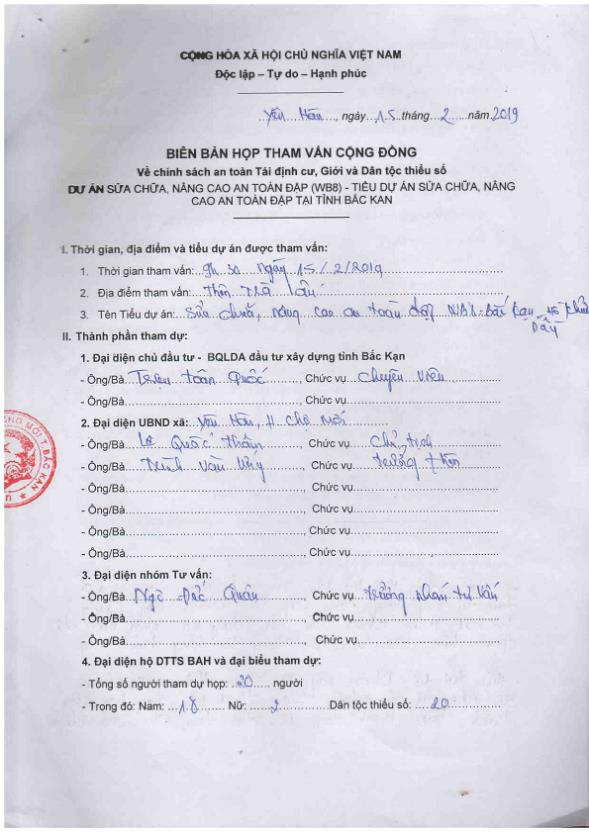 CỘNG HÒA XÃ HỘI CHỦ NGHĨA VIỆT NAM
Độc lập – Tự do – Hạnh phúc
Yên Hân, ngày 15 tháng 2 năm 2019
BIÊN BẢN HỌP THAM VẤN CỘNG ĐỒNG
Về chính sách an toàn Tái định cư, Giới và Dân tộc thiểu số
DỰ ÁN SỬA CHỮA, NÂNG CAO AN TOÀN ĐẬP (WB8) - TIỂU DỰ ÁN SỬA CHỮA, NÂNG
CAO AN TOÀN ĐẬP TẠI TỈNH BẮC KAN
I. Thời gian, địa điểm và tiểu dự án được tham vấn:
1. Thời gian tham vấn: 9h 30 ngày 15/2/2019
2. Địa điểm tham vấn: Thôn Trà
3. Tên Tiểu dự án: Sửa chữa, nâng cao an toàn đập WB8 Bắc Kạn
II. Thành phần tham dự:
1. Đại diện chủ đầu tư - BQLDA đầu tư xây dựng tỉnh Bắc Kạn
- Ông/Bà Toàn Quốc, Chức vụ chuyên viên
- Ông/Bà, Chức vụ
2. Đại diện UBND xã: Yên Hân, H. Chợ Mới
- Ông/Bà Quốc, Chức vụ Chủ tịch
- Ông/Bà Trịnh Văn, Chức vụ trưởng thôn
- Ông/Bà Chức vụ
- Ông/Bà Chức vụ
- Ông/Bà Chức vụ
- Ông/Bà, Chức vụ
3. Đại diện nhóm Tư vấn:
- Ông/Bà Ngô Quân, Chức vụ trưởng nhóm tư vấn
- Ông/Bà, Chức vụ
- Ông/Bà, Chức vụ
4. Đại diện hộ DTTS BAH và đại biểu tham dự:
- Tổng số người tham dự họp: 20 người
- Trong đó: Nam: 18 Nữ: 2 Dân tộc thiểu số: 20